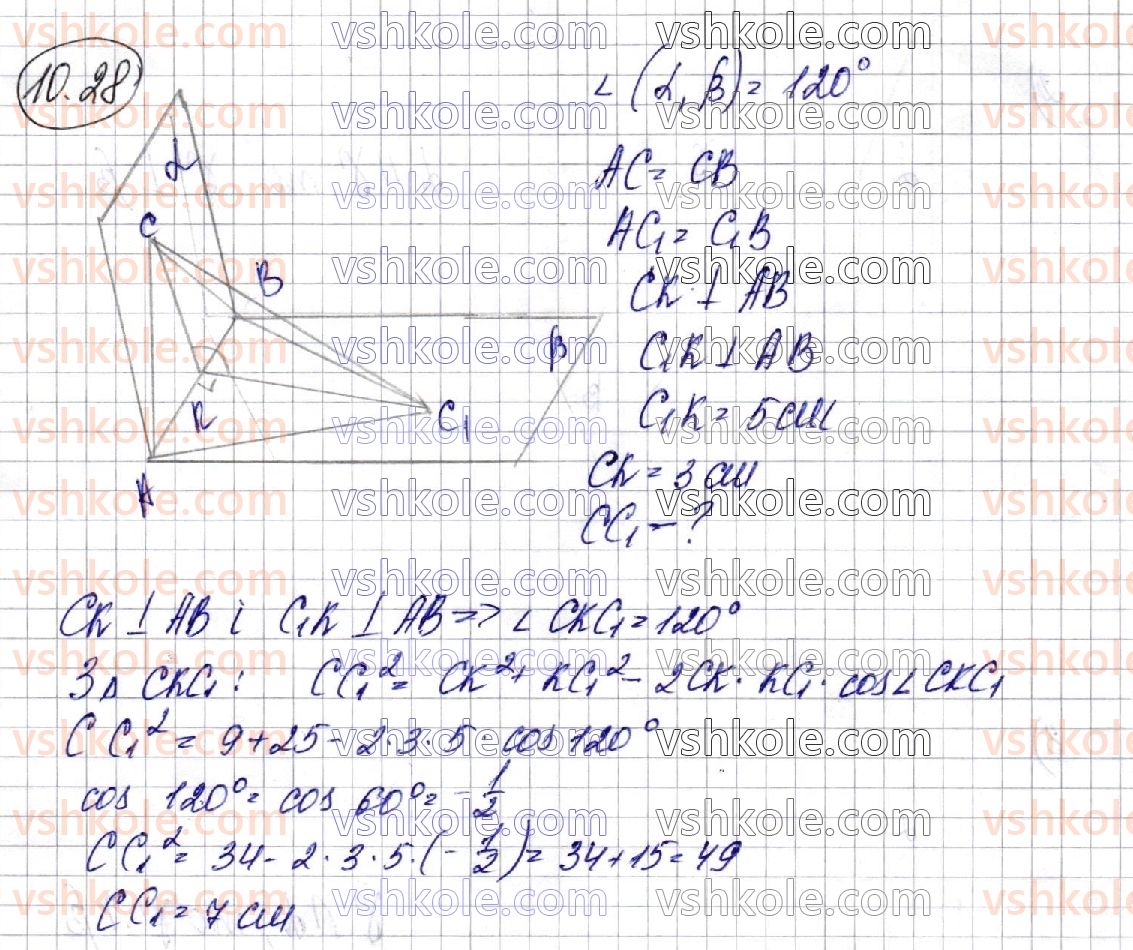 10.28
∠(α, β) = 120°
AC = CB
AC₁ = C₁B
CK ⊥ AB
C₁K ⊥ AB
C₁K = 5 см
CK = 3 см
CC₁ - ?
α
C
B
β
K
C₁
A
CK ⊥ AB і C₁K ⊥ AB => ∠CKC₁ = 120°
З Δ CKC₁: CC₁² = CK² + KC₁² - 2CK · KC₁ · cos∠CKC₁
CC₁² = 9 + 25 - 2·3·5 · cos 120°
cos 120° = cos 60° = -1/2
CC₁² = 34 - 2·3·5·(-1/2) = 34 + 15 = 49
CC₁ = 7 см
vshkole.com